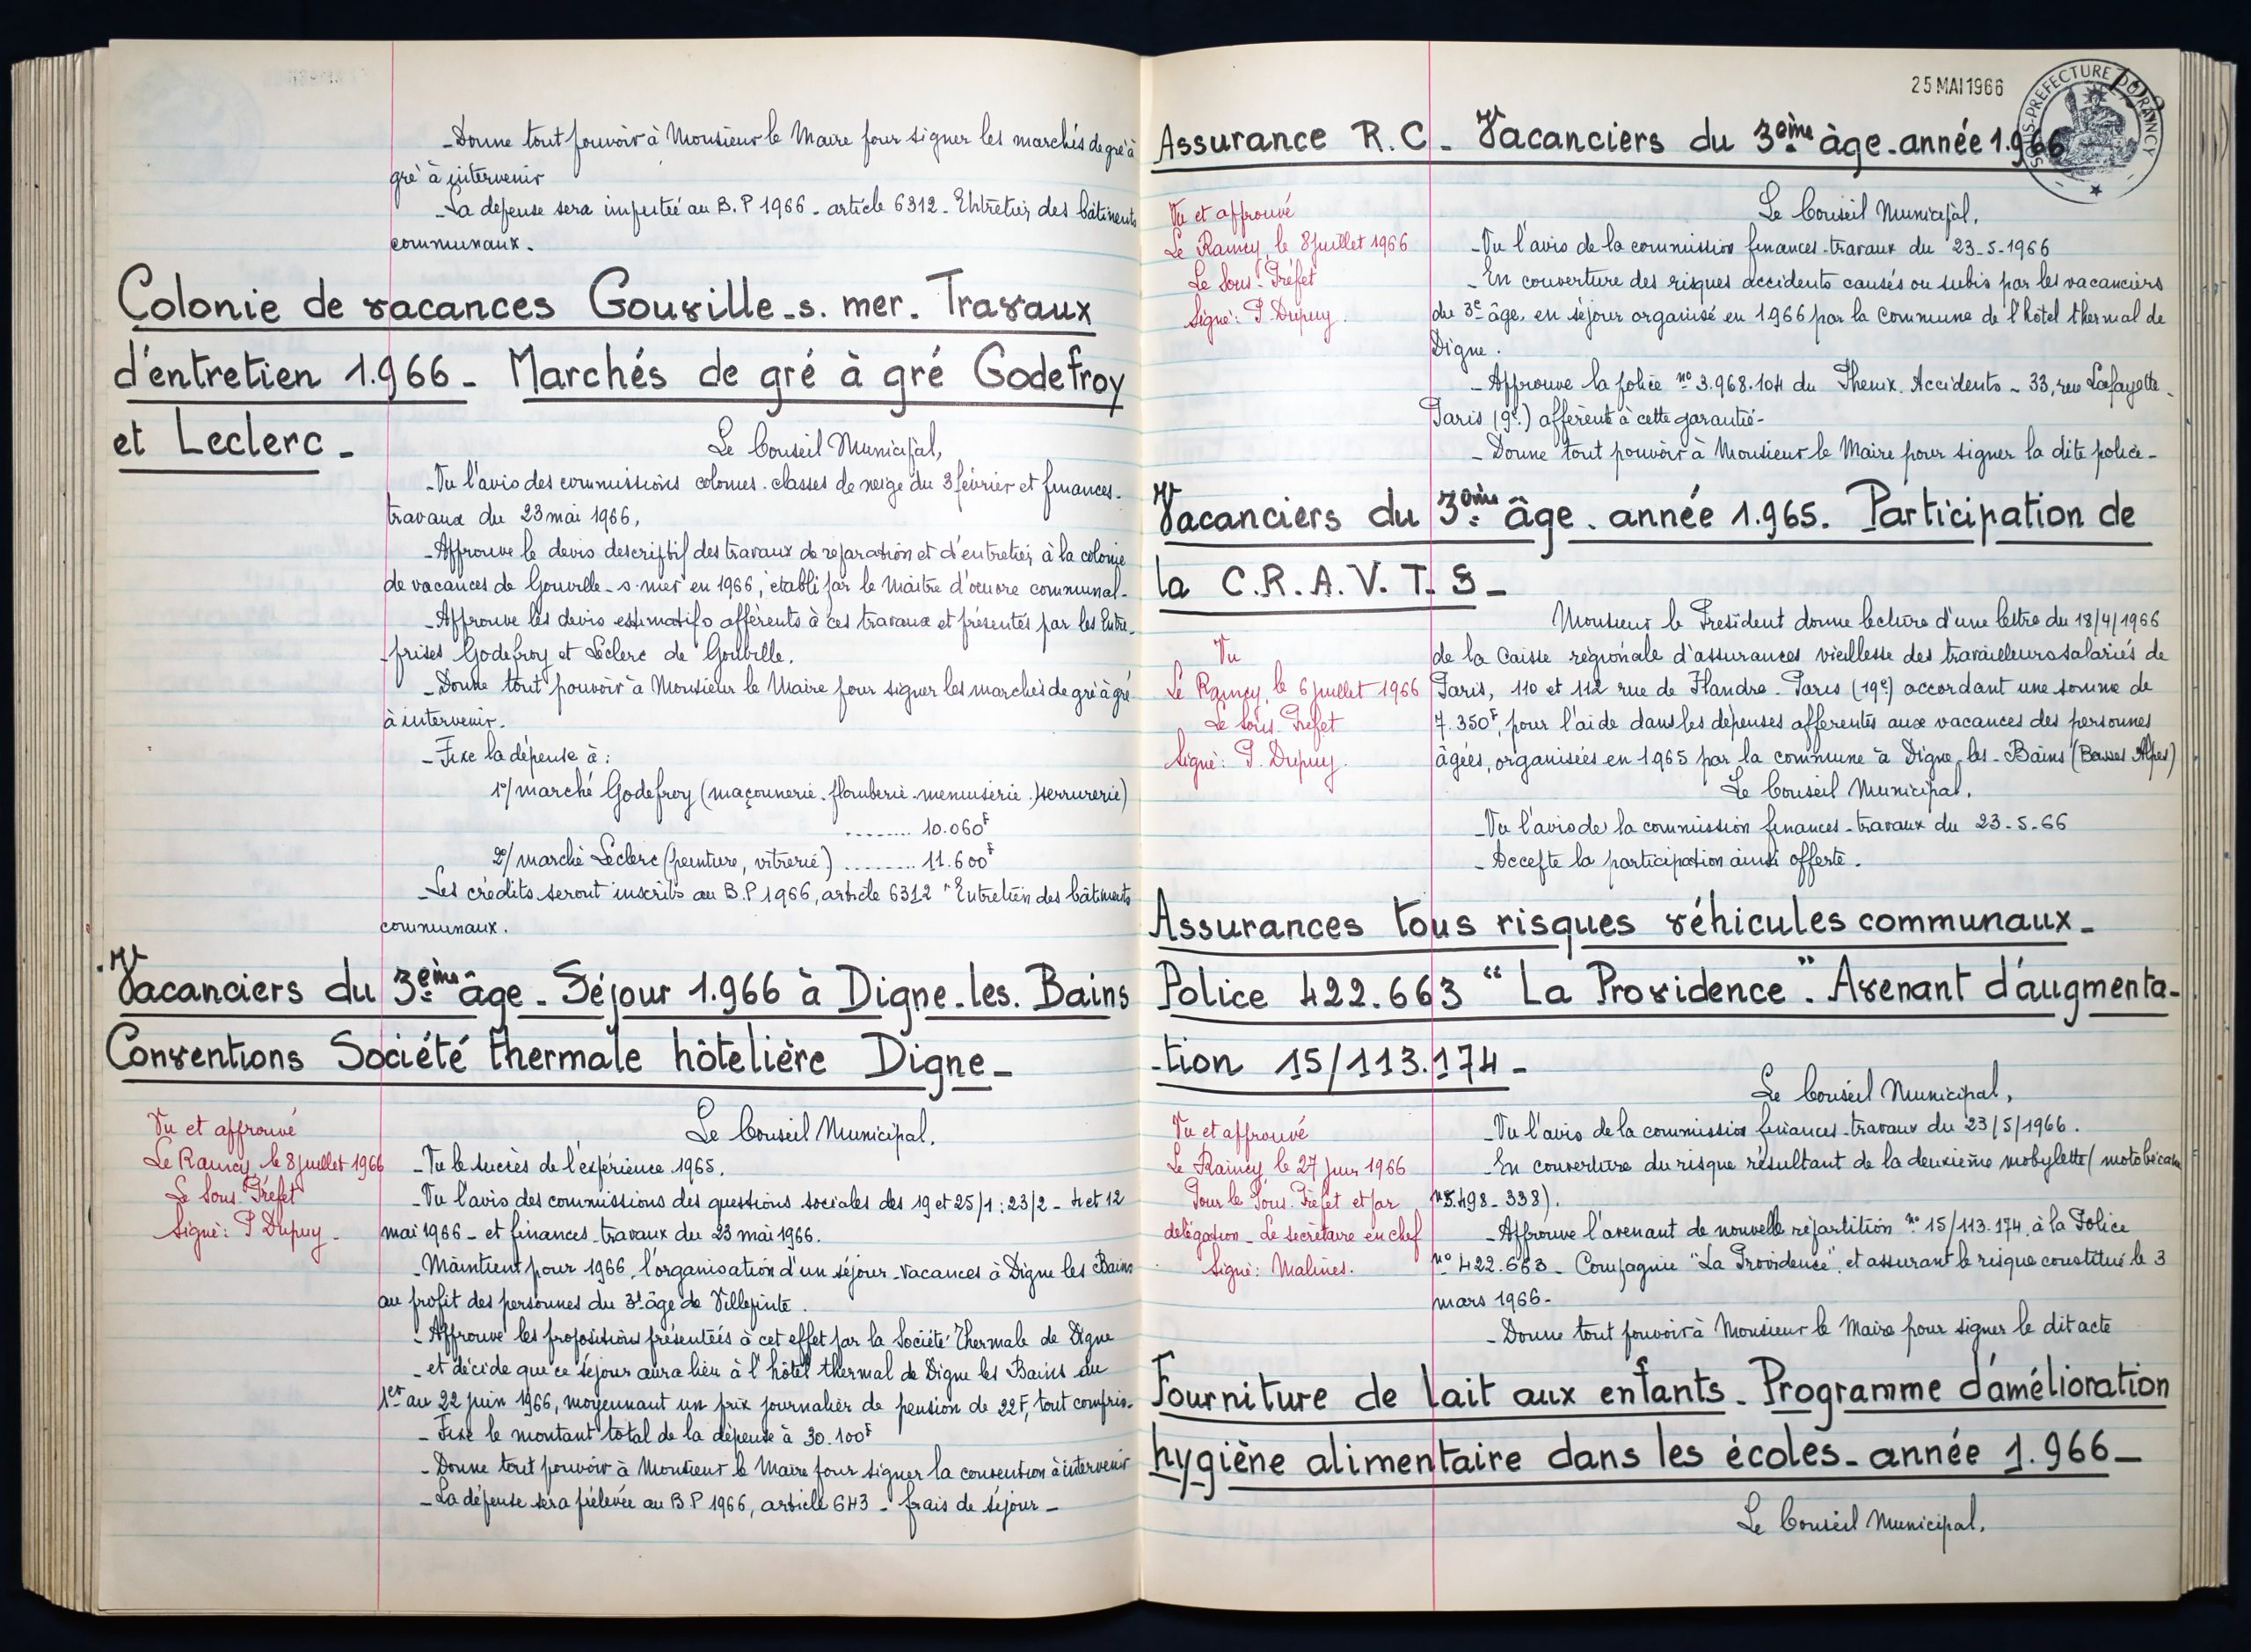 - Donne tout pouvoir à Monsieur le Maire pour signer les marchés de gré à
gré à intervenir
- La dépense sera imputée au B.P 1966 - article 6312 - Entretien des bâtiments
communaux.
Colonie de vacances Gouville-s. mer. Travaux
d'entretien 1.966 - Marchés de gré à gré Godefroy
et Leclerc -
Le Conseil Municipal,
- Vu l'avis des commissions colonies. classes de neige du 3 février et finances-
travaux du 23 mai 1966,
- Approuve le devis descriptif des travaux de réparation et d'entretien à la colonie
de vacances de Gouville-s-mer en 1966, établi par le Maître d'oeuvre communal-
- Approuve les devis estimatifs afférents à ces travaux et présentés par les Entre-
-prises Godefroy et Leclerc de Gouville.
- Donne tout pouvoir à Monsieur le Maire pour signer les marchés de gré à gré
à intervenir.
- Fixe la dépense à :
1°/ marché Godefroy (maçonnerie. plomberie. menuiserie. serrurerie)
........ 10.060F
2°/ marché Leclerc (peinture, vitrerie) ........ 11.600F
- Les crédits seront inscrits au B.P 1966, article 6312 "Entretien des bâtiments
communaux.
Vacanciers du 3ème âge - Séjour 1.966 à Digne-les. Bains
Conventions Société thermale hôtelière Digne-
Le Conseil Municipal.
Vu et approuvé
Le Raincy, le 8 juillet 1966
Le Sous-Préfet
Signé: P Dupuy -
- Vu le succès de l'expérience 1965.
- Vu l'avis des commissions des questions sociales des 19 et 25/1 : 23/2 - 4 et 12
mai 1966 - et finances-travaux du 23 mai 1966.
- Maintient pour 1966, l'organisation d'un séjour-vacances à Digne les Bains
au profit des personnes du 3e âge de Villepinte.
- Approuve les propositions présentées à cet effet par la Société Thermale de Digne
- et décide que ce séjour aura lieu à l'hôtel thermal de Digne les Bains du
1er au 22 juin 1966, moyennant un prix journalier de pension de 22F, tout compris.
- Fixe le montant total de la dépense à 30.100F
- Donne tout pouvoir à Monsieur le Maire pour signer la convention à intervenir
- La dépense sera prélevée au B.P 1966, article 643 - frais de séjour -
25 MAI 1966
SOUS-PREFECTURE DU RAINCY
Assurance R.C. Vacanciers du 3ème âge - année 1.966
Le Conseil Municipal,
Vu et approuvé
Le Raincy, le 8 juillet 1966
Le Sous-Préfet
Signé: P. Dupuy.
- Vu l'avis de la commission finances-travaux du 23-5-1966
- En couverture des risques accidents causés ou subis par les vacanciers
du 3e âge, en séjour organisé en 1966 par la Commune de l'hôtel thermal de
Digne.
- Approuve la police no 3.968.104 du Phenix. Accidents - 33, rue Lafayette -
Paris (9e.) afférente à cette garantie-
- Donne tout pouvoir à Monsieur le Maire pour signer la dite police-
Vacanciers du 3ème âge. année 1.965. Participation de
la C.R.A.V.T.S -
Monsieur le Président donne lecture d'une lettre du 18/4/1966
Vu
Le Raincy, le 6 juillet 1966
Le Sous-Préfet
Signé: P. Dupuy.
de la Caisse régionale d'assurances vieillesse des travailleurs salariés de
Paris, 110 et 112 rue de Flandre - Paris (19e) accordant une somme de
7.350F, pour l'aide dans les dépenses afférentes aux vacances des personnes
âgées, organisées en 1965 par la commune à Digne-les-Bains (Basses Alpes)
Le Conseil Municipal.
- Vu l'avis de la commission finances-travaux du 23-5-66
- Accepte la participation ainsi offerte.
Assurances tous risques véhicules communaux-
Police 422.663 "La Providence". Avenant d'augmenta-
-tion 15/113.174 -
Le Conseil Municipal,
Vu et approuvé
Le Raincy, le 27 juin 1966
Pour le Sous-Préfet et par
délégation - Le Secrétaire en chef
Signé: Malines.
- Vu l'avis de la commission finances-travaux du 23/5/1966.
- En couverture du risque résultant de la deuxième mobylette (motobécane
no 5.498-338).
- Approuve l'avenant de nouvelle répartition no 15/113.174 à la Police
no 422.663 - Compagnie "La Providence", et assurant le risque constitué le 3
mars 1966-
- Donne tout pouvoir à Monsieur le Maire pour signer le dit acte
Fourniture de lait aux enfants - Programme d'amélioration
hygiène alimentaire dans les écoles - année 1.966 -
Le Conseil Municipal.